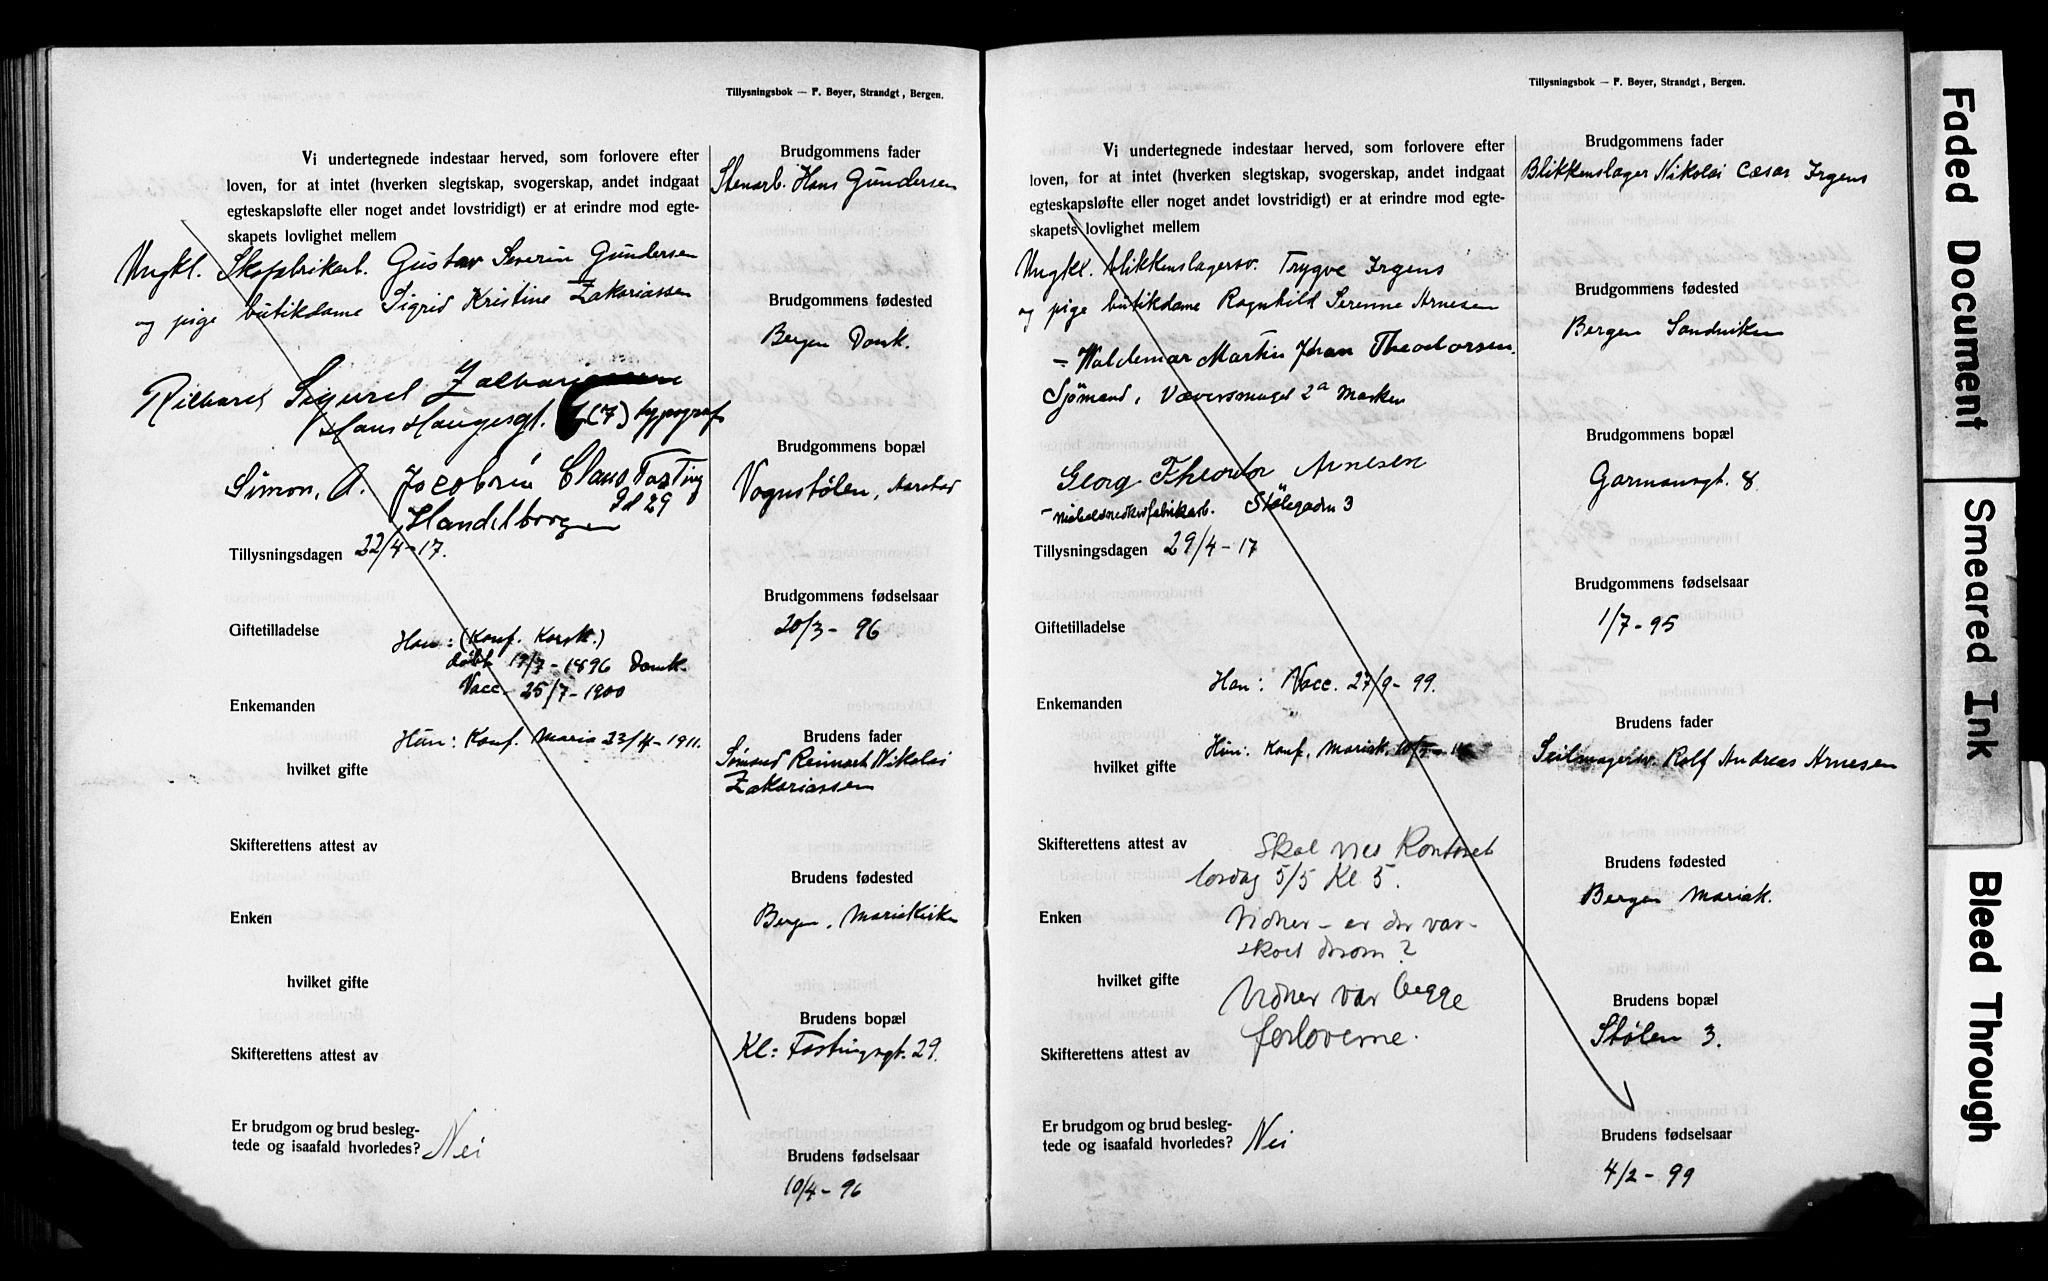 Tillysningsbok — F. Bøyer, Strandgt, Bergen.
Vi undertegnede indestaar herved, som forlovere efter
loven, for at intet (hverken slegtskap, svogerskap, andet indgaat
egteskapsløfte eller noget andet lovstridigt) er at erindre mod egte-
skapets lovlighet mellem
Ungkl. Skofabrikarb. Gustav Severin Gundersen
og pige butikdame Sigrid Kristine Zakariassen
Sigurd Zachariassen
Hans Haugesgt. (7) typograf
Simon. A. Jacobsen Claus Fasting
gd 29
Tillysningsdagen 22/4-17.
Giftetilladelse
Han: (Konf. Korsk.)
døbt 19/7-1896 Domk.
Vacc. 25/7-1900
Enkemanden
Hun: Konf. Maria 23/4-1911.
hvilket gifte
Skifterettens attest av
Enken
hvilket gifte
Skifterettens attest av
Er brudgom og brud besleg-
tede og isaafald hvorledes? Nei
Brudgommens fader
Stenarb. Hans Gundersen
Brudgommens fødested
Bergen Domk.
Brudgommens bopæl
Vognstølen, Aarstad
Brudgommens fødselsaar
20/3-96
Brudens fader
Sømand Reinart Nikolai
Zakariassen
Brudens fødested
Bergen, Mariakirke
Brudens bopæl
Kl: Fastingsgt. 29.
Brudens fødselsaar
10/4-96
Tillysningsbok — F. Bøyer, Strandgt, Bergen.
Vi undertegnede indestaar herved, som forlovere efter
loven, for at intet (hverken slegtskap, svogerskap, andet indgaat
egteskapsløfte eller noget andet lovstridigt) er at erindre mod egte-
skapets lovlighet mellem
Ungkl. blikkenslagersv. Trygve Irgens
og pige butikdame Ragnhild Serenne Arnesen
- Waldemar Martin Johan Theodorsen.
Sjømand, Væversmuget 2a Marken
Georg Theodor Arnesen
Stølegaden 3
Tillysningsdagen 29/4-17
Giftetilladelse
Han: Vacc. 27/9-99.
Enkemanden
Hun: Konf. Mariak.
hvilket gifte
Skifterettens attest av
Skal vies Kontoret
lørdag 5/5 Kl 5.
Enken
Vidner - er der var-
skoet derom?
hvilket gifte
Vidner var begge
forloverne.
Skifterettens attest av
Er brudgom og brud besleg-
tede og isaafald hvorledes? Nei
Brudgommens fader
Blikkenslager Nikolai Cæsar Irgens
Brudgommens fødested
Bergen Sandviken
Brudgommens bopæl
Garmansgt. 8
Brudgommens fødselsaar
1/7-95
Brudens fader
Seilmagersv. Rolf Andreas Arnesen
Brudens fødested
Bergen Mariak.
Brudens bopæl
Stølen 3.
Brudens fødselsaar
4/2-99
Faded Document
Smeared Ink
Bleed Through